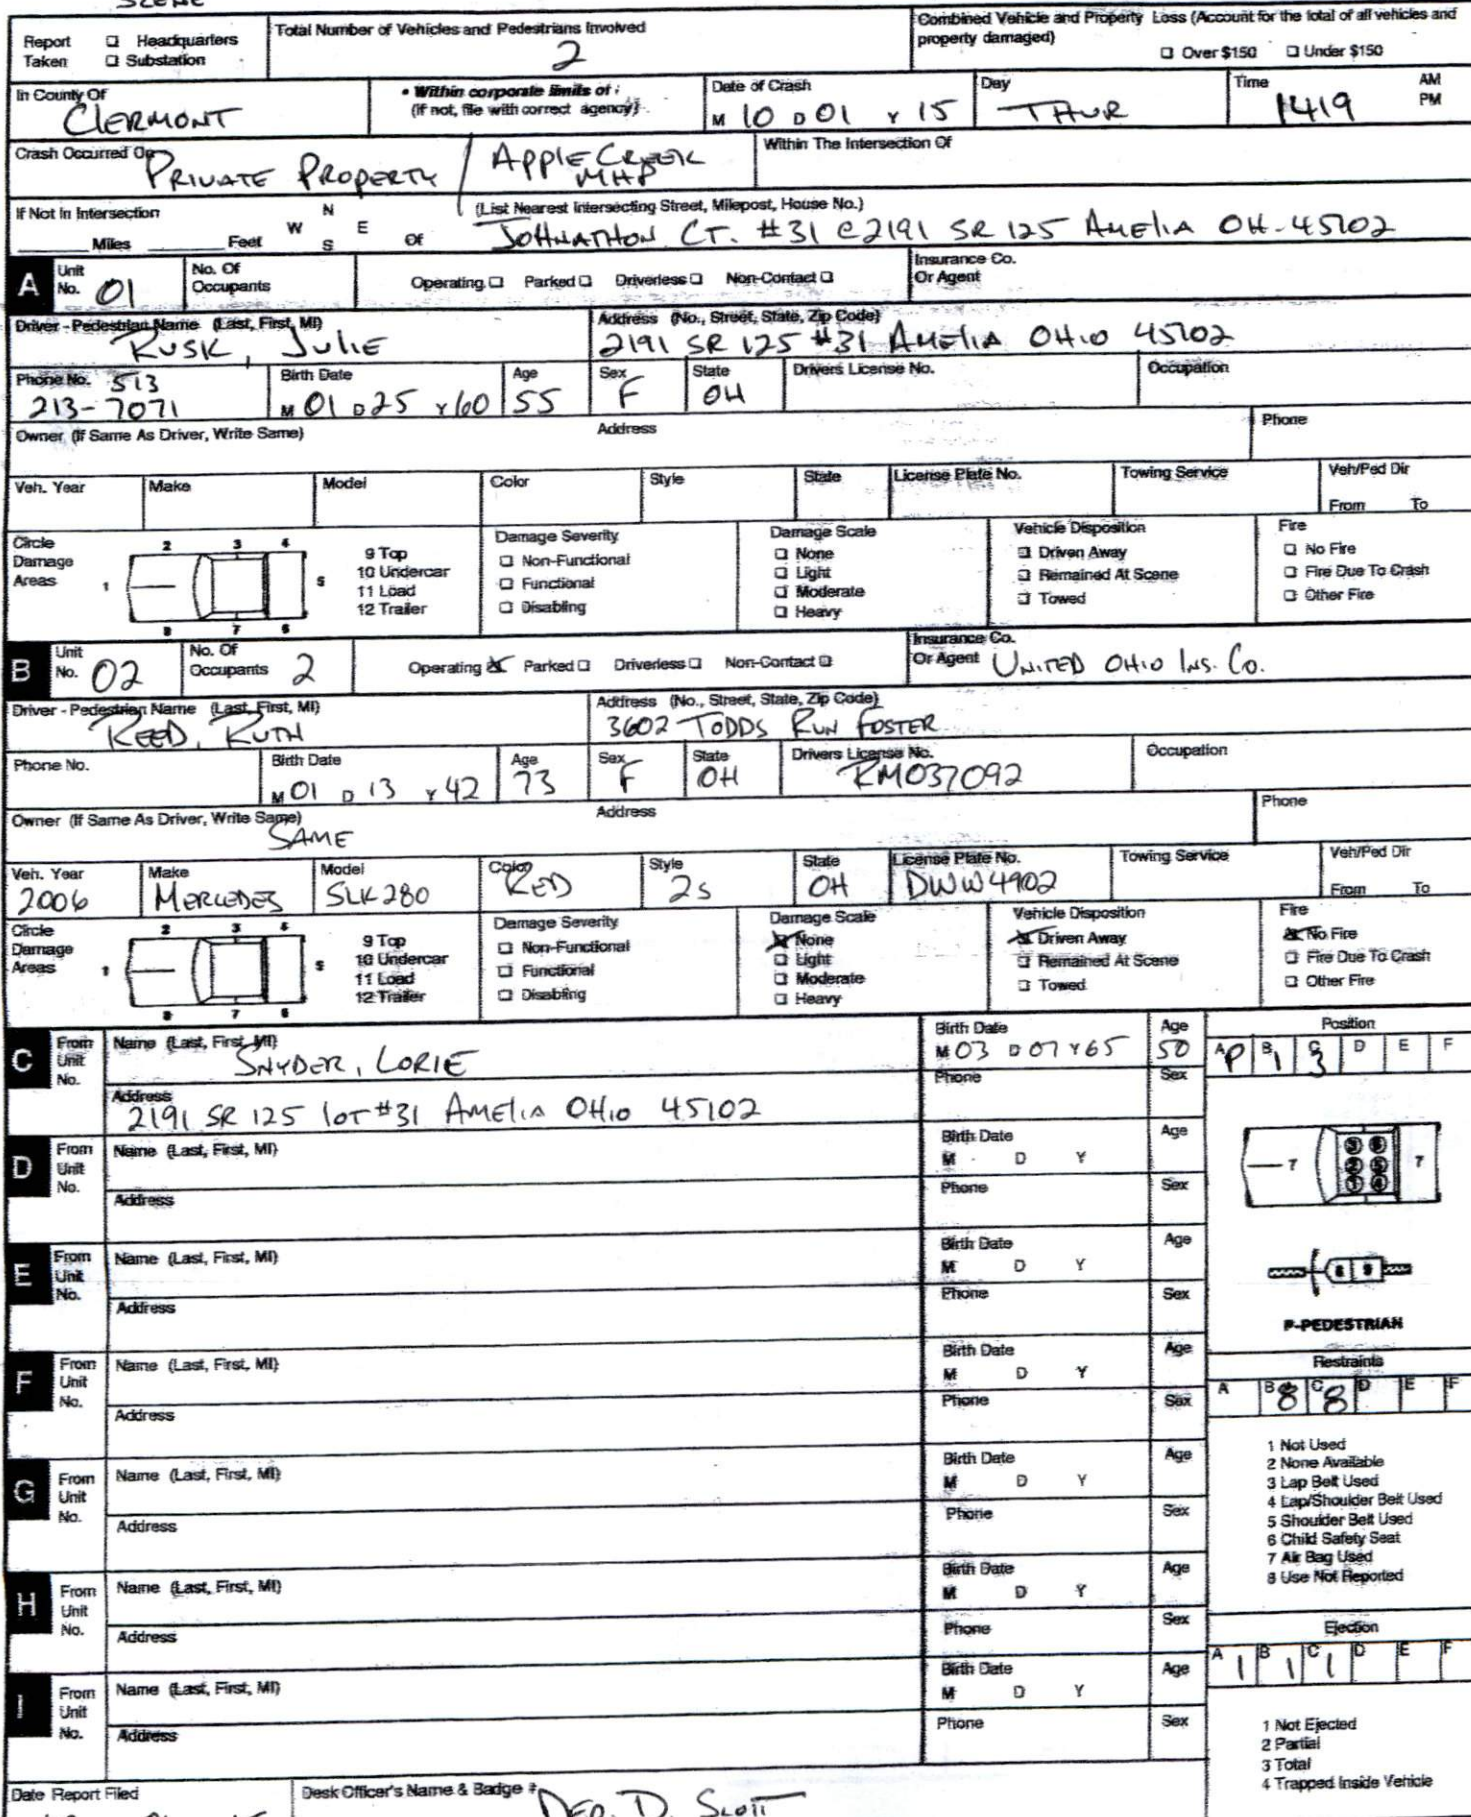 SCENE
Report Taken ☐ Headquarters ☐ Substation
Total Number of Vehicles and Pedestrians Involved 2
Combined Vehicle and Property Loss (Account for the total of all vehicles and property damaged) ☐ Over $150 ☐ Under $150
In County Of CLERMONT
• Within corporate limits of: (if not, file with correct agency)
Date of Crash M 10 D 01 Y 15
Day THUR
Time 1419 AM PM
Crash Occurred On PRIVATE PROPERTY / APPLE CREEK MHP
Within The Intersection Of
If Not In Intersection
Miles Feet N W E S Of
(List Nearest Intersecting Street, Milepost, House No.)
JOHNATHON CT. #31 @ 2191 SR 125 AMELIA OH-45102
A Unit No. 01
No. Of Occupants
Operating ☐ Parked ☐ Driverless ☐ Non-Contact ☐
Insurance Co. Or Agent
Driver - Pedestrian Name (Last, First, MI) RUSK, JULIE
Address (No., Street, State, Zip Code) 2191 SR 125 #31 AMELIA OHIO 45102
Phone No. 513 213-7071
Birth Date M 01 D 25 Y 60
Age 55
Sex F
State OH
Drivers License No.
Occupation
Owner (If Same As Driver, Write Same)
Address
Phone
Veh. Year Make Model Color Style State License Plate No. Towing Service Veh/Ped Dir From To
Circle Damage Areas
1 2 3 4 5 6 7 8
9 Top
10 Undercar
11 Load
12 Trailer
Damage Severity
☐ Non-Functional
☐ Functional
☐ Disabling
Damage Scale
☐ None
☐ Light
☐ Moderate
☐ Heavy
Vehicle Disposition
☐ Driven Away
☐ Remained At Scene
☐ Towed
Fire
☐ No Fire
☐ Fire Due To Crash
☐ Other Fire
B Unit No. 02
No. Of Occupants 2
Operating ☒ Parked ☐ Driverless ☐ Non-Contact ☐
Insurance Co. Or Agent UNITED OHIO INS. CO.
Driver - Pedestrian Name (Last, First, MI) REED, RUTH
Address (No., Street, State, Zip Code) 3602 TODDS RUN FOSTER
Phone No.
Birth Date M 01 D 13 Y 42
Age 73
Sex F
State OH
Drivers License No. RM037092
Occupation
Owner (If Same As Driver, Write Same) SAME
Address
Phone
Veh. Year 2006
Make MERCEDES
Model SLK280
Color RED
Style 2S
State OH
License Plate No. DWW4902
Towing Service
Veh/Ped Dir From To
Circle Damage Areas
1 2 3 4 5 6 7 8
9 Top
10 Undercar
11 Load
12 Trailer
Damage Severity
☐ Non-Functional
☐ Functional
☐ Disabling
Damage Scale
☒ None
☐ Light
☐ Moderate
☐ Heavy
Vehicle Disposition
☒ Driven Away
☐ Remained At Scene
☐ Towed
Fire
☒ No Fire
☐ Fire Due To Crash
☐ Other Fire
C From Unit No.
Name (Last, First, MI) SNYDER, LORIE
Birth Date M 03 D 07 Y 65
Age 50
Address 2191 SR 125 LOT #31 AMELIA OHIO 45102
Phone
Sex
Position
A P B 1 C 3 D E F
D From Unit No.
Name (Last, First, MI)
Birth Date M D Y
Age
Address
Phone
Sex
7 3 6 2 5 1 4 7
E From Unit No.
Name (Last, First, MI)
Birth Date M D Y
Age
Address
Phone
Sex
8 9
P-PEDESTRIAN
F From Unit No.
Name (Last, First, MI)
Birth Date M D Y
Age
Address
Phone
Sex
Restraints
A B 8 C 8 D E F
1 Not Used
2 None Available
3 Lap Belt Used
4 Lap/Shoulder Belt Used
5 Shoulder Belt Used
6 Child Safety Seat
7 Air Bag Used
8 Use Not Reported
G From Unit No.
Name (Last, First, MI)
Birth Date M D Y
Age
Address
Phone
Sex
H From Unit No.
Name (Last, First, MI)
Birth Date M D Y
Age
Address
Phone
Sex
Ejection
A 1 B 1 C 1 D E F
I From Unit No.
Name (Last, First, MI)
Birth Date M D Y
Age
Address
Phone
Sex
1 Not Ejected
2 Partial
3 Total
4 Trapped Inside Vehicle
Date Report Filed
Desk Officer's Name & Badge # DEP. D. SCOTT